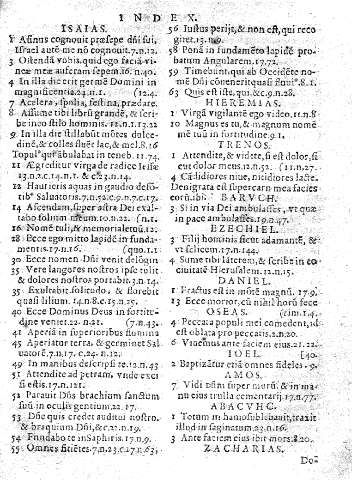 INDEX.
ISAIAS.
1 Asinus cognouit præsepe dñi sui,
Israel autē me nō cognouit.7.n.12.
3 Ostendā vobis.quid ego faciā vi-
neæ meæ auferam sepem.16.n.40.
4 In illa die erit germen Domini in
magnificentia.24.n.1. (12.4.
7 Acelera, spolia, festina, prædare.
8 Assume tibi librū grandē, & scri-
be in eo stilo hominis.18.n.1.13.22
9 In illa die stillabūt mōtes dulce-
dinē, & colles fluēt lac, & mel.8.16
Topul' q ambulabat in teneb. 11.74.
11 Ægredietur virga de radice Iesse
13.n.2.c.14.n.1. & c23.n.14.
12 Haurietis aquas in gaudio de fōti-
Saluatoris.7.n.52.c.9.n.7.c.17.
14 Ascendam super astra Dei exal-
tabo solium meum.10.n.21. (n.1.
16 Nomē tuū, & memoriale tuū.12.
28 Ecce ego mitto lapidē in funda-
mentis.17.n.16. (quo.1.
30 Ecce nomen Dñi venit delōgin
35 Vere langores nostros ipse tulit
& dolores nostros portabit.3.n.14.
35 Exultabit solitudo, & florebit
quasi lilium. 14.n.8.c.15.n.25.
40 Ecce Dominus Deus in fortitu-
dine veniet.22.n.21. (7.n.43.
41 Aperiā in superioribus flumina
45 Aperiatur terra, & germinet Sal
uatorē.7.n.17.c.24. n.12.
49 In manibus descripsi te.12.n.43
51 Attendite ad petram, vnde exci
si estis.17.n.121.
52 Parauit Dñs brachium sanctum
suū in oculis gentium.22.17.
53 Dñs quis credet auditui nostro,
& braquium Dñi, &c.21.n.43.
54 Fundabo te in Saphiris.17.n.9.
55 Omnes sitiētes.7.n.23.c.17.n.63,
56 Iustus perijt, & non est, qui reco
giret.13.n.9.
58 Ponā in fundamēto lapidē pro-
batum Angularem.17.72.
59 Timebunt, qui ab Occidēte no-
mē Dñi cū venerit quasi fluui°.8.1.
63 Quis est iste, qui, &c.9.n.28.
HIEREMIAS.
1 Virgā vigilantē ego video.11.n.8
10 Magnus es tu, & magnum nomē
mē tuū in fortitudine.9.1.
TRENOS.
1 Attendite, & videte, si est dolor, si
cut dolor meus.12.n.52. (11.n.27.
4 Cādidiores niue, nitidiores lacte.
Denigrata est super carbones facies
eorū.ibi. BARVCH.
3 Si in via Dei ambulasses, vt quæ
in pace ambulasses.19.n.47.
EZECHIEL.
2 Filij hominis fecit adamantē, &
vt silicem.17.n.144.
4 Sume tibi laterem, & scribe in eo
ciuitatē Hierusalem.12.n.15.
DANIEL.
1 Fractus est in mōtē magnū. 17.9.
13 Ecce morior, cū nihil horū fece-
OSEAS. (rim.1.4.
4 Peccata populi mei comedent, id
est oblata pro peccatis.2.n.20.
6 Viuemus ante faciem eius.21.22.
IOEL. [40.
2 Baptizātur etiā omnes fideles.9.
AMOS.
7 Vidi Dñm super murū, & in ma-
nu eius trulla cementarij.17.n.77.
ABACVHC.
1 Totum in hamo subleuabit, traxit
illud in saginatum.23.n.16.
3 Ante faciem eius ibit mors.8.20.
ZACHARIAS.
Do-